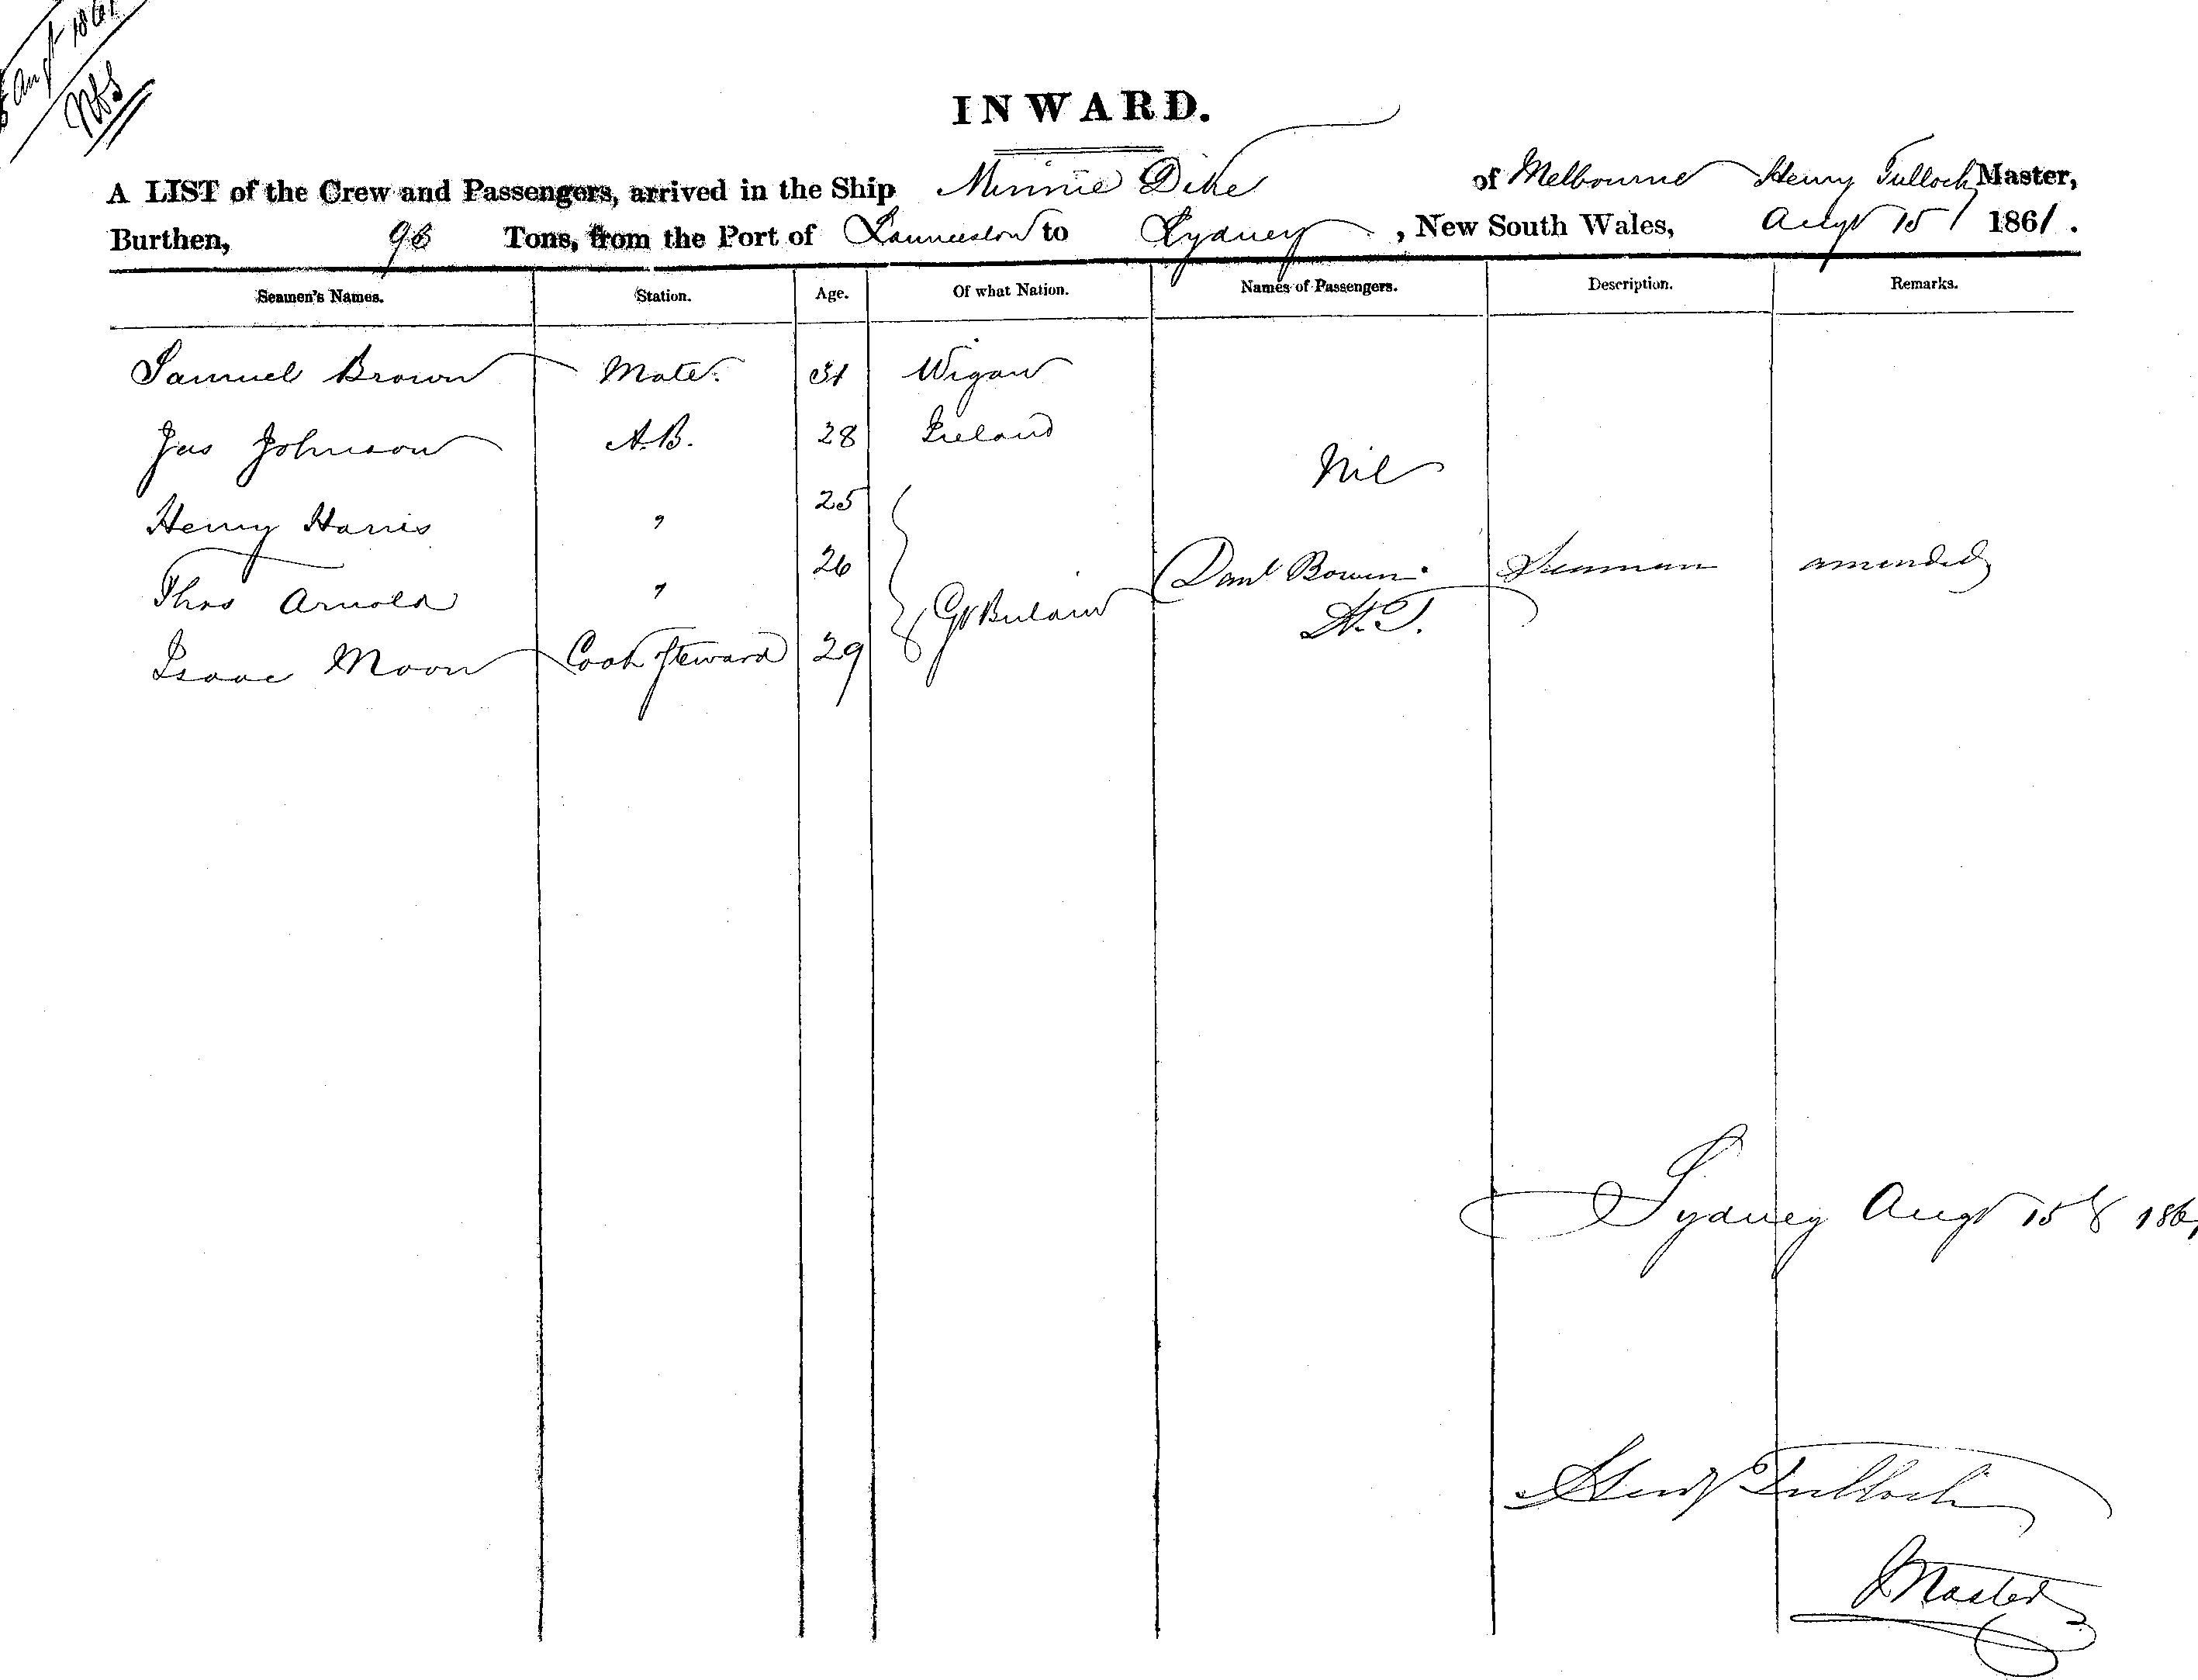 Augt 1861
INWARD.
A LIST of the Crew and Passengers, arrived in the Ship Minnie Dike of Melbourne Henry Tulloch Master,
Burthen, 98 Tons, from the Port of Launceston to Sydney, New South Wales, Augt 15 1861.
Seamen's Names. Station. Age. Of what Nation. Names of Passengers. Description. Remarks.
Samuel Brown Mate. 31 Wigan
Jas Johnson A.B. 28 Ireland
Nil
Henry Harris " 25
Thos Arnold " 26 Gt Britain Danl Bowen. Seaman amended
H.T.
Isaac Moon Cook Steward 29
Sydney Augt 15 1861
Henry Tulloch
Master